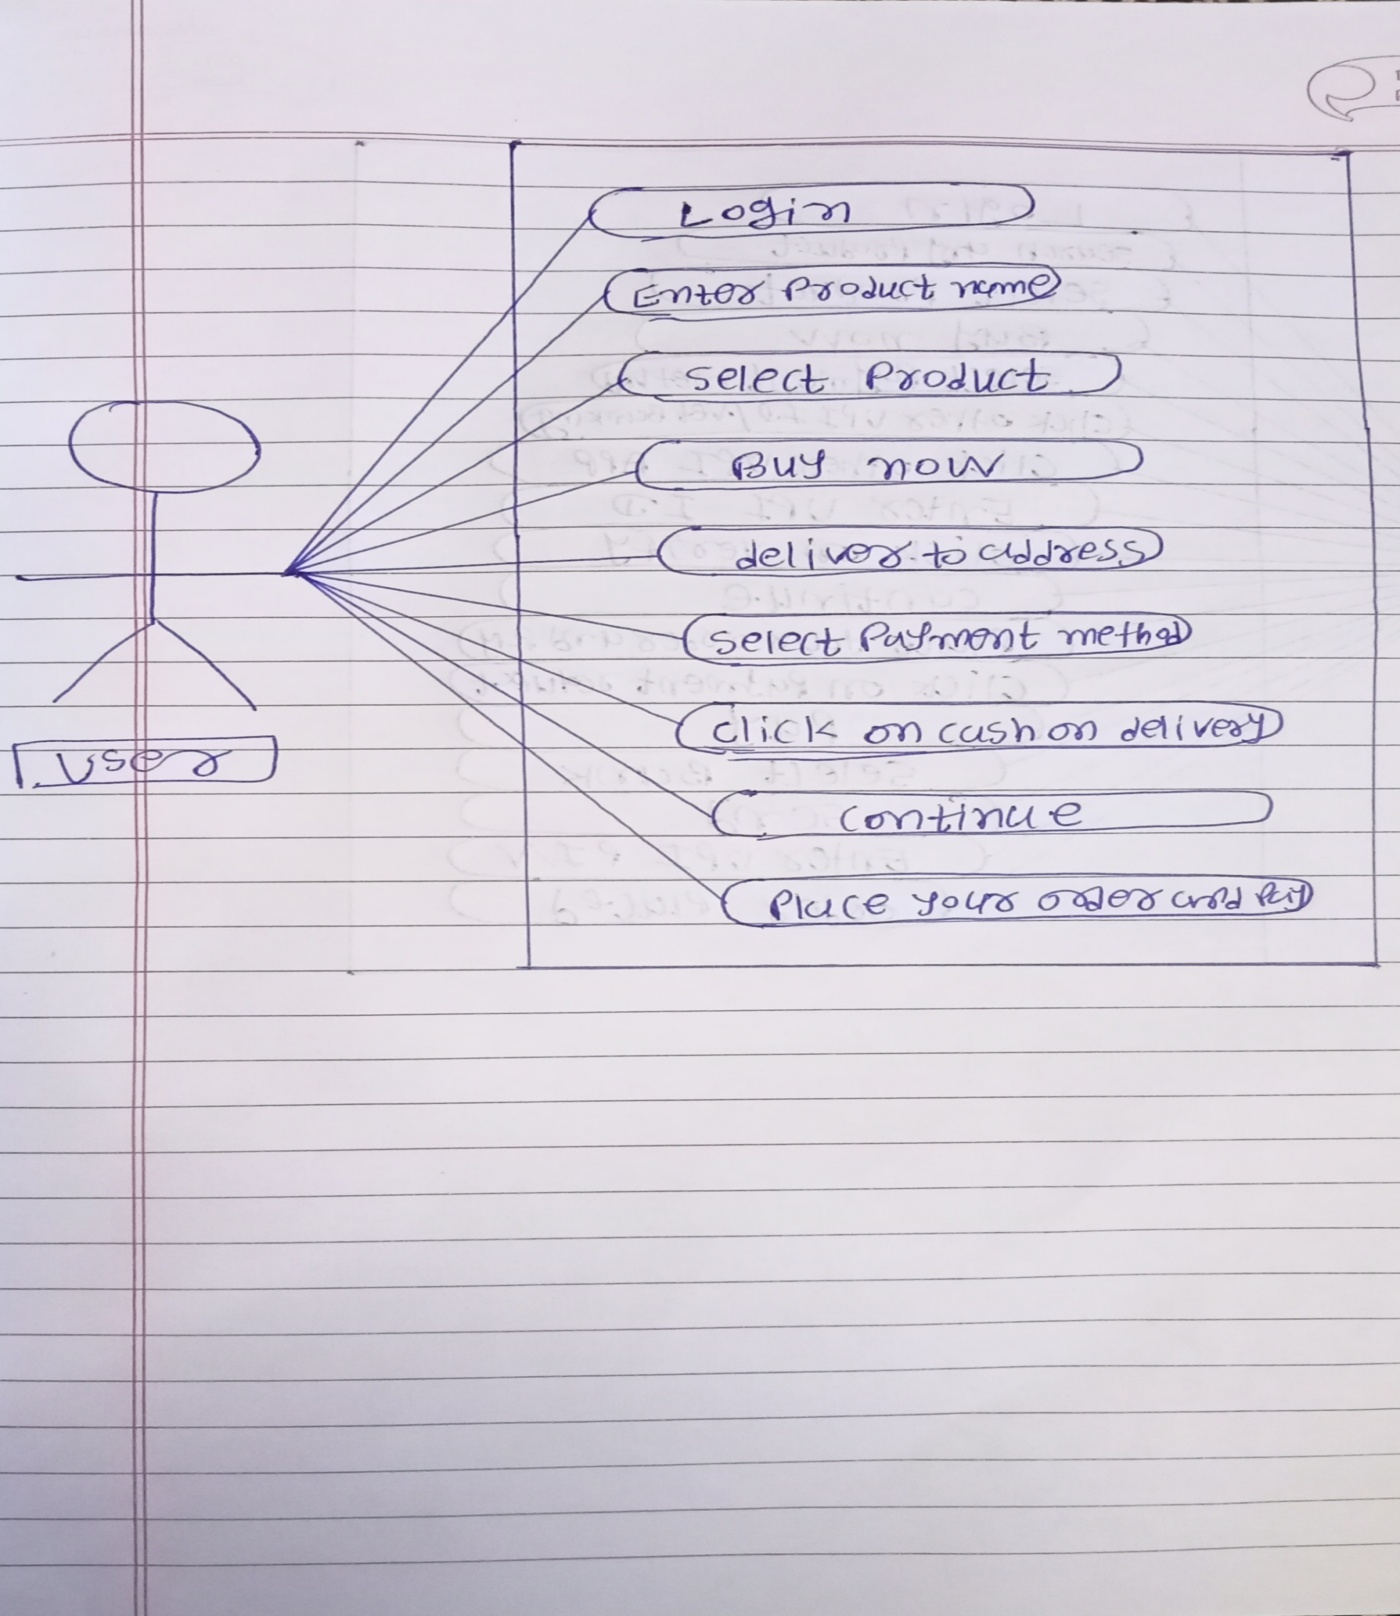 Login
Enter Product name
select Product
Buy now
deliver to address
select Payment method
click on cash on delivery
User
continue
Place your order and Pay